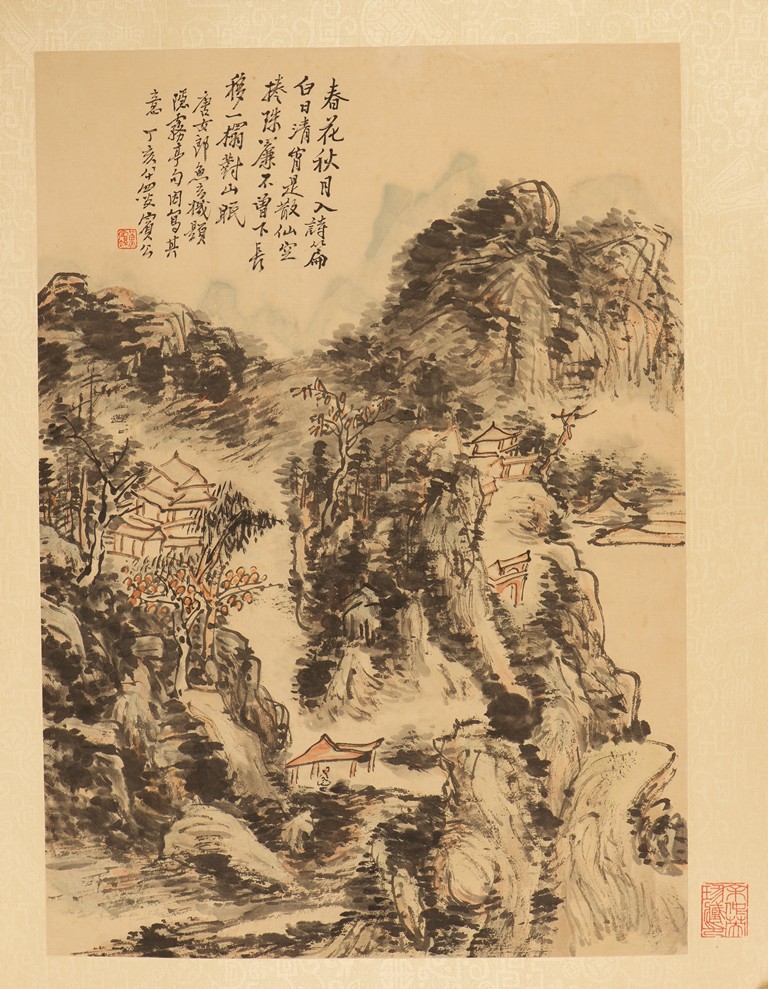 春花秋月入詩篇
白日清宵是散仙空
捲珠簾不曾下長
移一榻對山眠
唐女郎魚玄機題
隱霧亭句因寫其
意丁亥八十四叟賓公